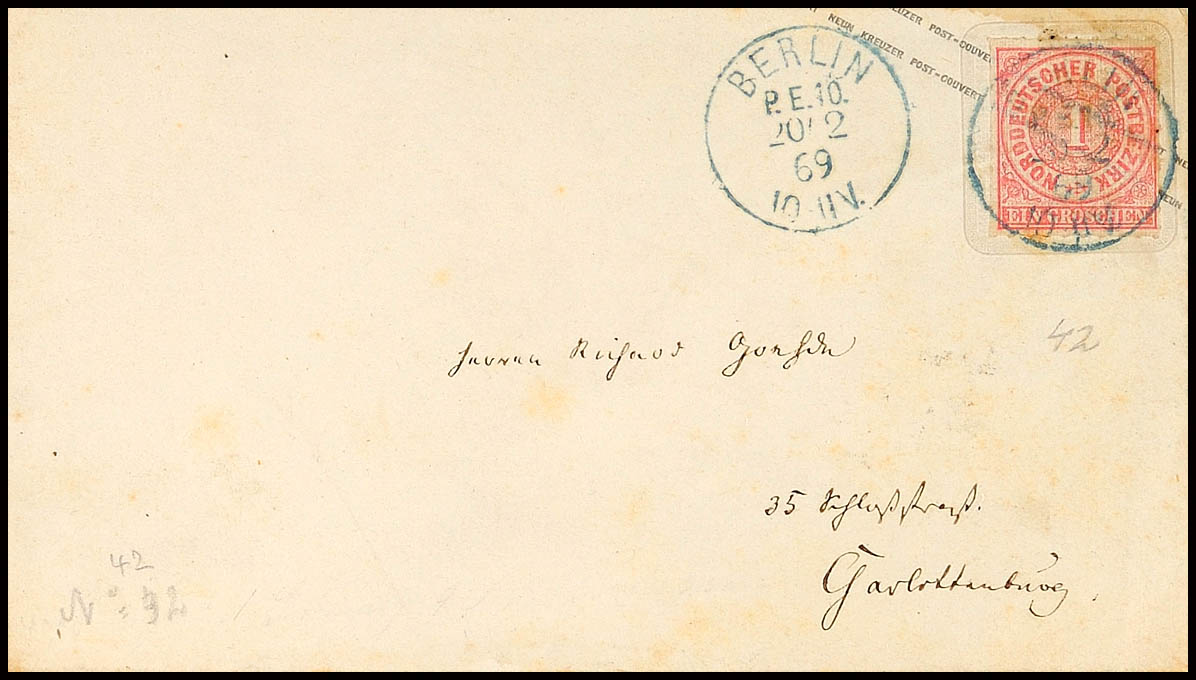 NEUN KREUZER POST-COUVERT
KREUZER POST-COUVERT
BERLIN
P.E.10.
20/2
69
10-11V.
NORDDEUTSCHER POSTBEZIRK
1
EIN GROSCHEN
Herren Richard
42
35 Schloßstraß.
Charlottenburg
42
No 42